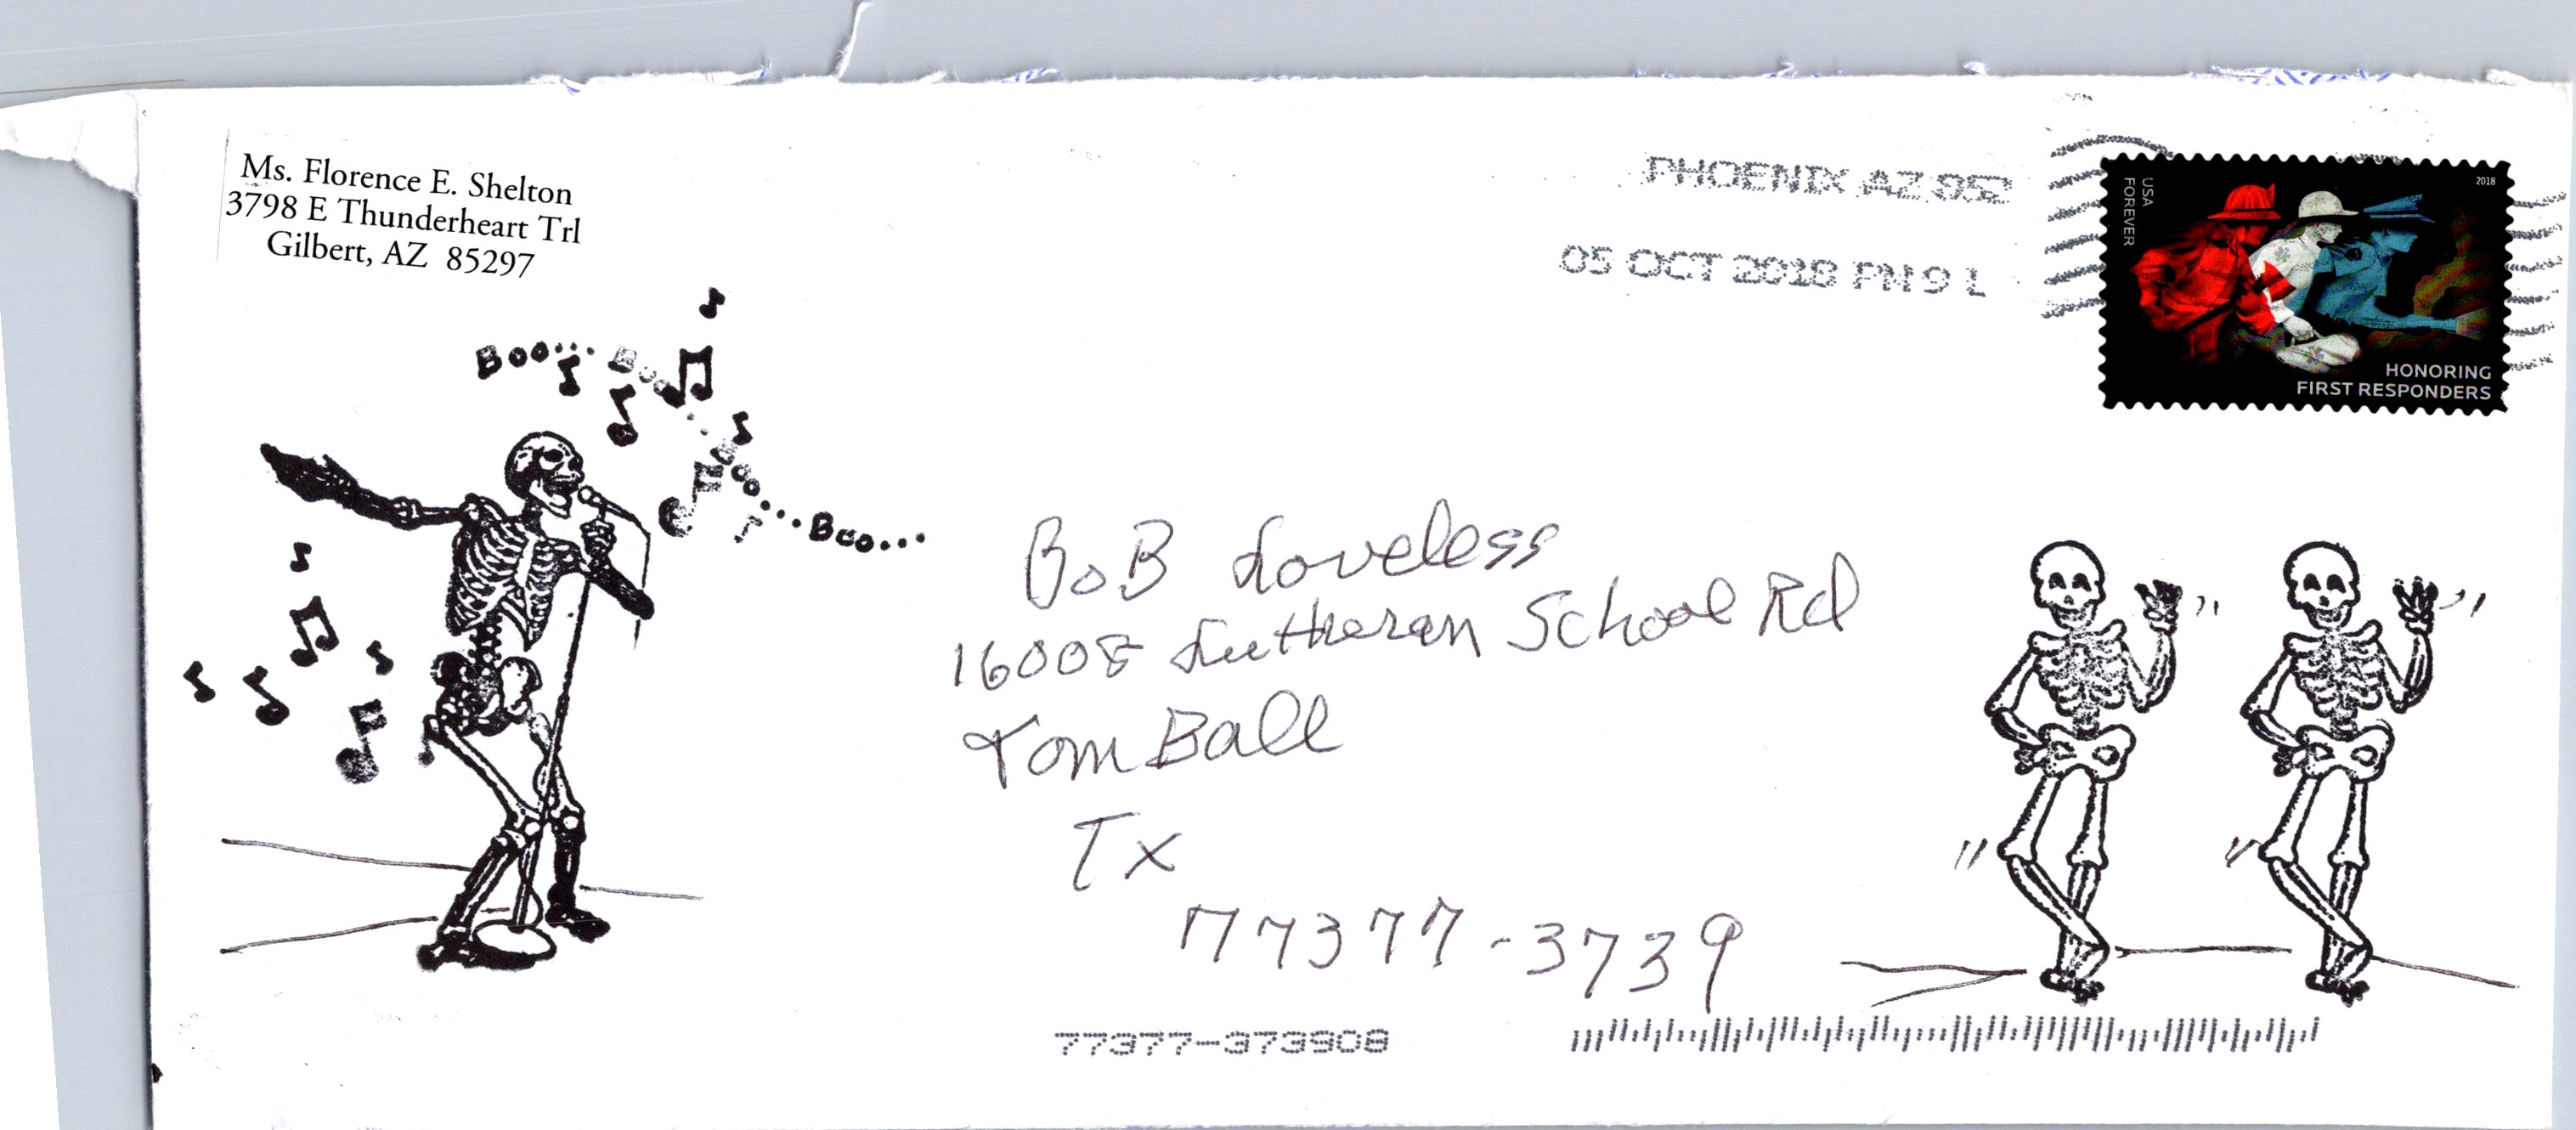 Ms. Florence E. Shelton
3798 E Thunderheart Trl
Gilbert, AZ 85297
PHOENIX AZ 852
05 OCT 2018 PM 9 L
USA
FOREVER
2018
HONORING
FIRST RESPONDERS
Boo... Boo... Boo... Boo...
BoB Loveless
16008 Lutheran School Rd
TomBall
Tx
77377-3739
77377-373908